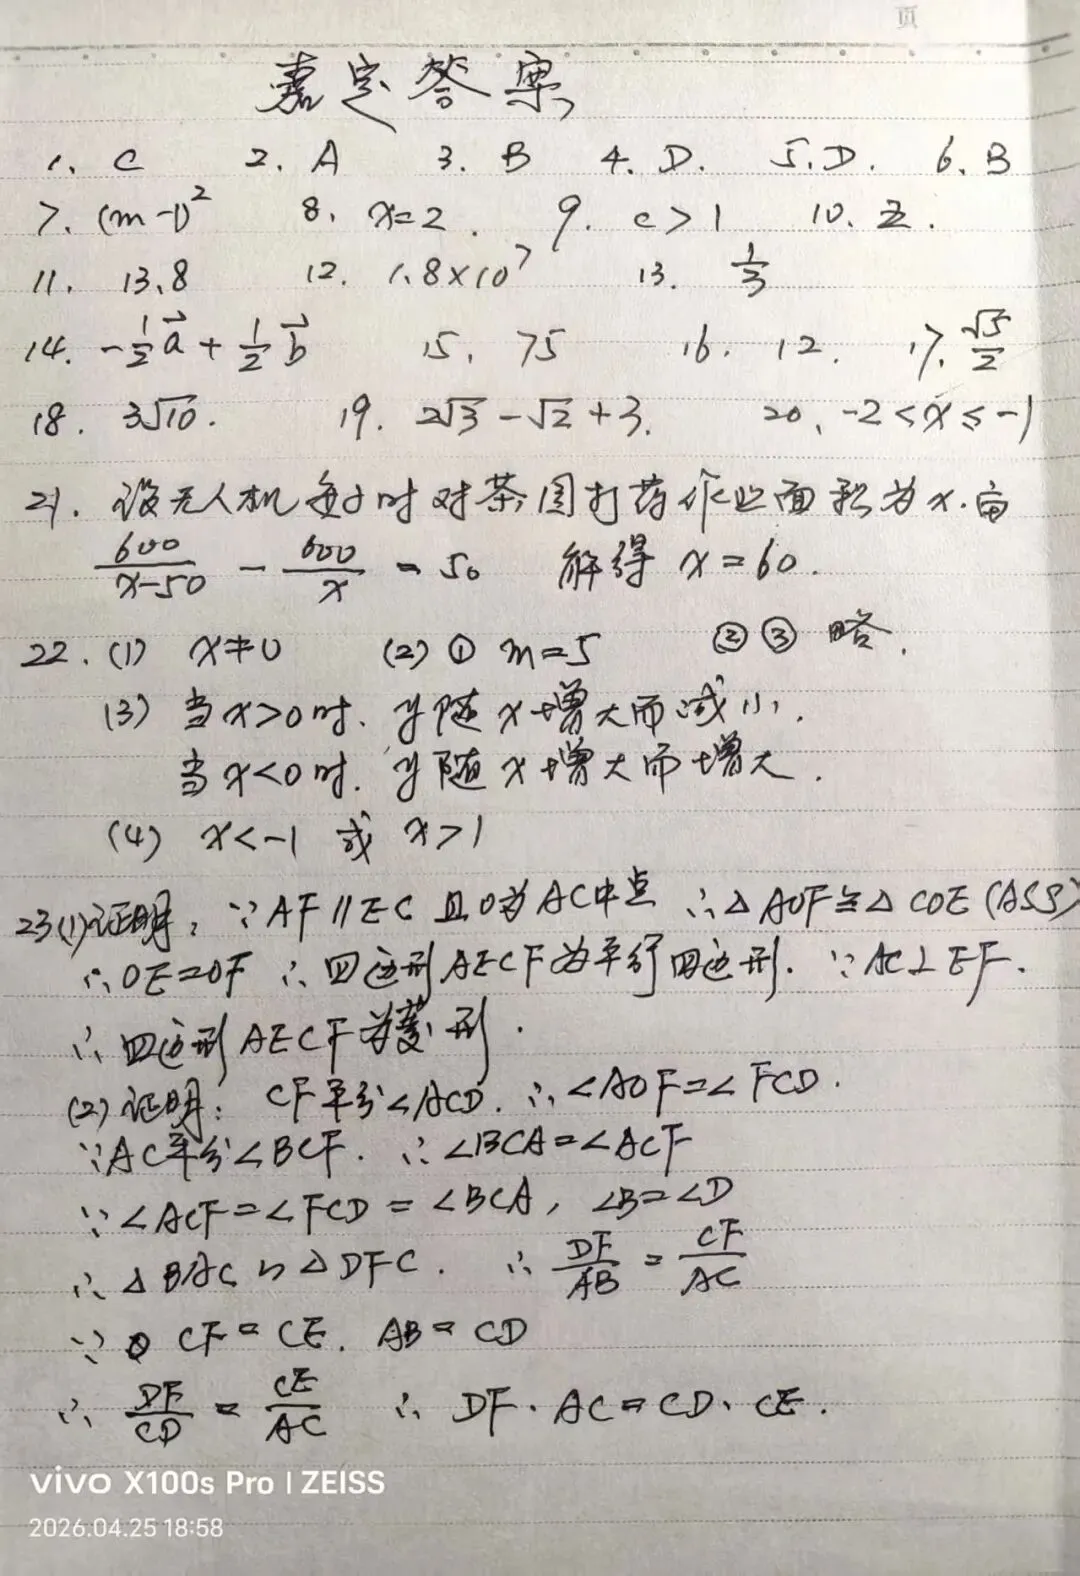 页
嘉定答案
1. C 2. A 3. B 4. D. 5. D. 6. B
7. (m-1)² 8. x=2. 9. c>1 10. 二.
11. 13.8 12. 1.8×10⁷ 13. 1/3
14. -1/2 a⃗ + 1/2 b⃗ 15. 75 16. 12. 17. √5/2
18. 3√10. 19. 2√3-√2+3. 20. -2<x≤-1
21. 设无人机每小时对茶园打药作业面积为x.亩
600/(x-50) - 600/x = 50 解得 x=60.
22. (1) x≠0 (2) ① m=5 ②③ 略.
(3) 当x>0时. y随x增大而减小.
当x<0时. y随x增大而增大.
(4) x<-1 或 x>1
23(1)证明: ∵AF∥EC 且O为AC中点 ∴△AOF≌△COE(ASS)
∴OE=OF ∴四边形AECF为平行四边形. ∵AC⊥EF.
∴四边形AECF为菱形.
(2)证明: CF平分∠ACD. ∴∠AOF=∠FCD.
∵AC平分∠BCF. ∴∠BCA=∠ACF
∵∠ACF=∠FCD=∠BCA, ∠B=∠D
∴△BAC∽△DFC. ∴DF/AB=CF/AC
∵CF=CE. AB=CD
∴DF/CD=CE/AC ∴DF·AC=CD·CE.
vivo X100s Pro | ZEISS
2026.04.25 18:58